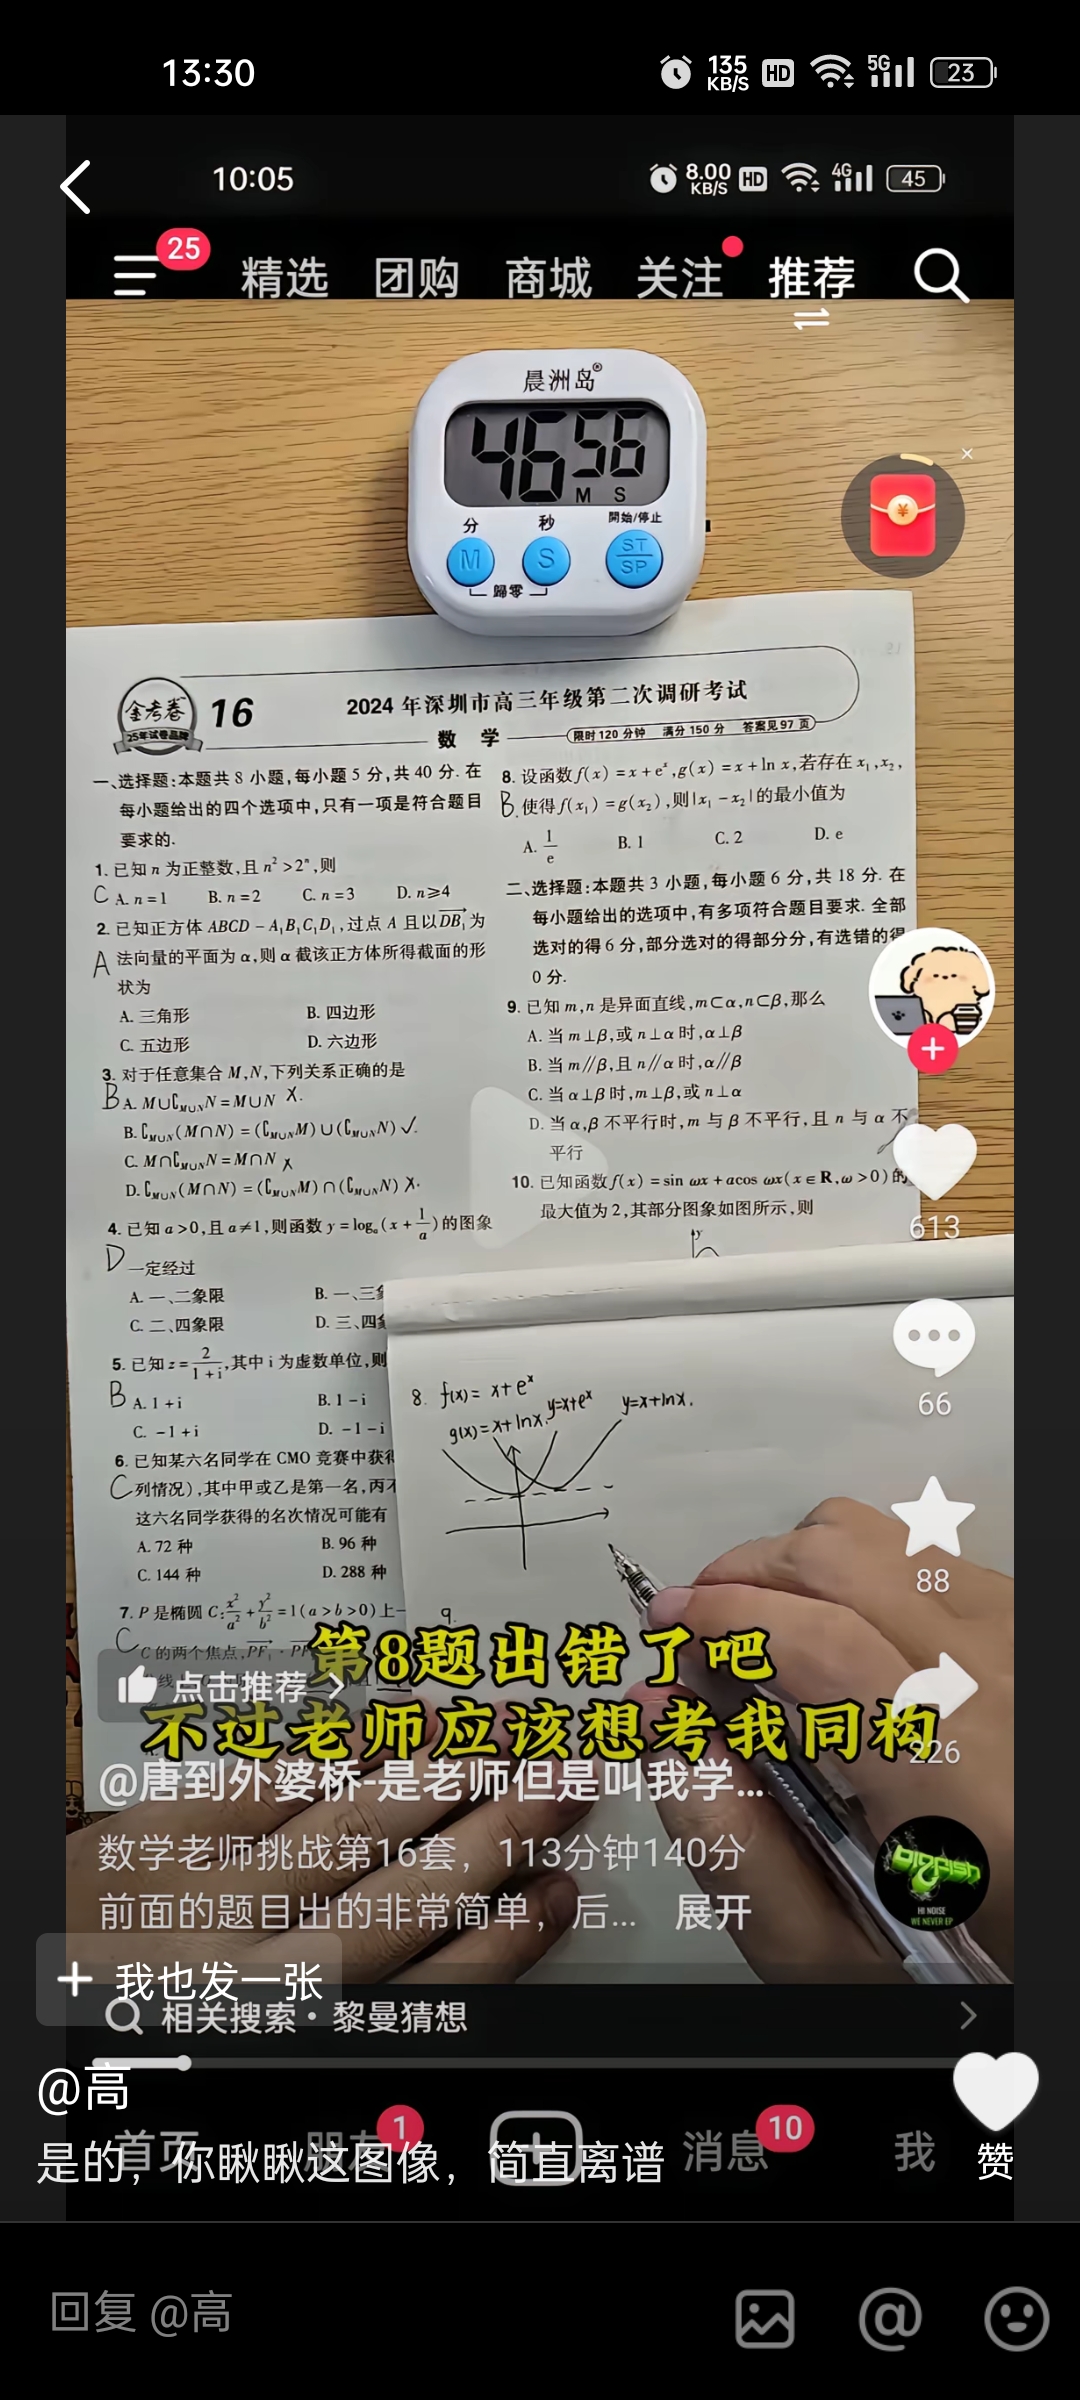 13:30
135 KB/S HD 5G 23
10:05
8.00 KB/S HD 4G 45
25
精选 团购 商城 关注 推荐
晨洲岛®
46 56
M S
分 秒 開始/停止
M S ST/SP
歸零
金考卷
25年试卷品牌
16
2024 年深圳市高三年级第二次调研考试
数 学
限时120分钟 满分150分 答案见97页
一、选择题:本题共 8 小题,每小题 5 分,共 40 分.在
每小题给出的四个选项中,只有一项是符合题目
要求的.
1. 已知 n 为正整数,且 n²>2ⁿ,则
C A. n=1 B. n=2 C. n=3 D. n≥4
2. 已知正方体 ABCD-A₁B₁C₁D₁,过点 A 且以DB₁为
A 法向量的平面为 α,则 α 截该正方体所得截面的形
状为
A. 三角形 B. 四边形
C. 五边形 D. 六边形
3. 对于任意集合 M,N,下列关系正确的是
B A. M∪∁M∪NN=M∪N X.
B. ∁M∪N(M∩N)=(∁M∪NM)∪(∁M∪NN) √.
C. M∩∁M∪NN=M∩N X
D. ∁M∪N(M∩N)=(∁M∪NM)∩(∁M∪NN) X.
4. 已知 a>0,且 a≠1,则函数 y=logₐ(x+1/a)的图象
D 一定经过
A. 一、二象限 B. 一、三
C. 二、四象限 D. 三、四
5. 已知 z=2/(1+i),其中 i 为虚数单位,则
B A. 1+i B. 1-i
C. -1+i D. -1-i
6. 已知某六名同学在 CMO 竞赛中获得
C 列情况),其中甲或乙是第一名,丙不
这六名同学获得的名次情况可能有
A. 72 种 B. 96 种
C. 144 种 D. 288 种
7. P 是椭圆 C:x²/a²+y²/b²=1(a>b>0)上一
C C 的两个焦点,PF₁·PF
8. 设函数 f(x)=x+eˣ,g(x)=x+ln x,若存在 x₁,x₂,
B. 使得 f(x₁)=g(x₂),则|x₁-x₂|的最小值为
A. 1/e B. 1 C. 2 D. e
二、选择题:本题共 3 小题,每小题 6 分,共 18 分.在
每小题给出的选项中,有多项符合题目要求.全部
选对的得 6 分,部分选对的得部分分,有选错的得
0 分.
9. 已知 m,n 是异面直线,m⊂α,n⊂β,那么
A. 当 m⊥β,或 n⊥α 时,α⊥β
B. 当 m∥β,且 n∥α 时,α∥β
C. 当 α⊥β 时,m⊥β,或 n⊥α
D. 当 α,β 不平行时,m 与 β 不平行,且 n 与 α 不
平行
10. 已知函数 f(x)=sin ωx+acos ωx(x∈R,ω>0)的
最大值为 2,其部分图象如图所示,则
y
8. f(x)= x+eˣ
g(x)=x+lnx. y=x+eˣ y=x+lnx.
9.
613
66
88
226
第8题出错了吧
不过老师应该想考我同构
点击推荐
@唐到外婆桥-是老师但是叫我学...
数学老师挑战第16套，113分钟140分
前面的题目出的非常简单，后... 展开
BIGFISH
HI NOISE
WE NEVER EP
我也发一张
相关搜索·黎曼猜想
@高
首页 朋友 1 消息 10 我
是的，你瞅瞅这图像，简直离谱
赞
回复 @高